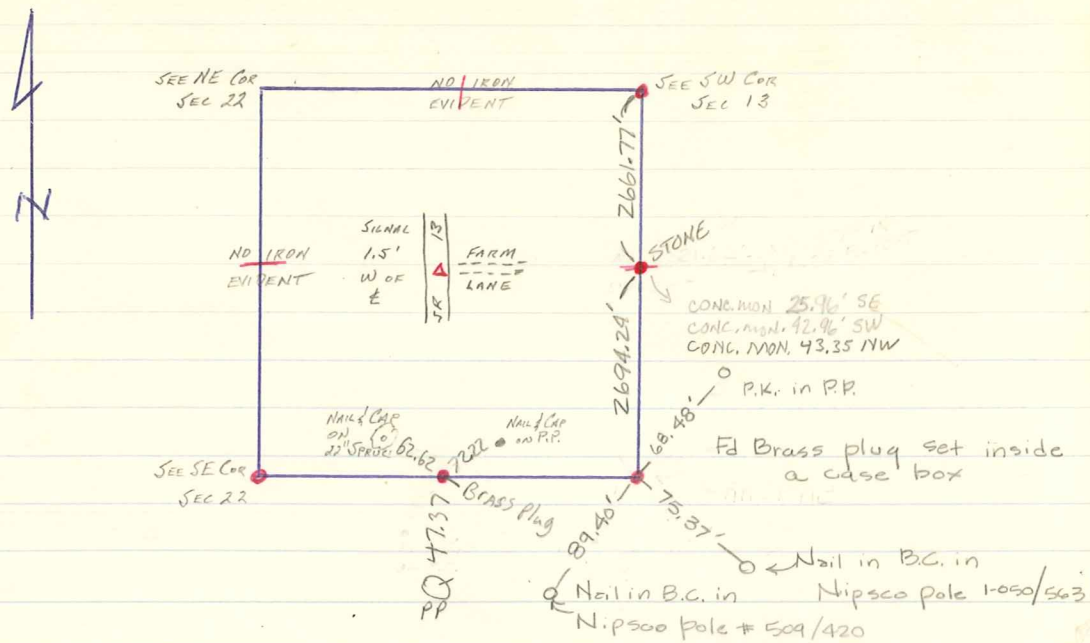 N
SEE NE COR
SEC 22
NO IRON
EVIDENT
SEE SW COR
SEC 13
2661.77'
STONE
SIGNAL
1.5'
W OF
℄
SR 13
FARM
LANE
NO IRON
EVIDENT
2694.24'
CONC. MON. 25.96' SE
CONC. MON. 42.96' SW
CONC. MON. 43.35 NW
P.K. in P.P.
68.48'
Fd Brass plug set inside
a case box
NAIL & CAP
ON
22" SPRUCE
62.62
72.22
NAIL & CAP
ON P.P.
SEE SE COR
SEC 22
Brass Plug
47.37
PP
89.40'
75.37'
Nail in B.C. in
Nipsco pole 1-050/563
Nail in B.C. in
Nipsco pole # 509/420